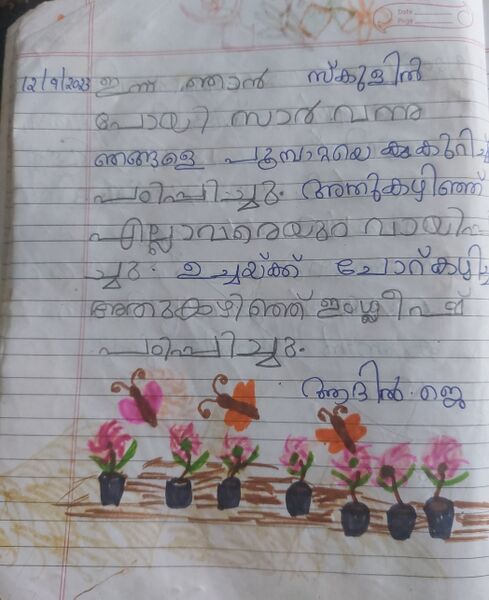 Date
Page
12/9/2023 ഇന്ന് ഞാൻ സ്കൂളിൽ
പോയി സാർ വന്നു
ഞങ്ങളെ പൂമ്പാറ്റയെ കുറിച്ച്
പഠിപ്പിച്ചു. അതുകഴിഞ്ഞ്
എല്ലാവരെയും വായിപ്പി
ച്ചു. ഉച്ചയ്ക്ക് ചോറ്കഴിച്ചു
അതുകഴിഞ്ഞ് ഇംഗ്ലീഷ്
പഠിപ്പിച്ചു.
ആദിൽ ജെ